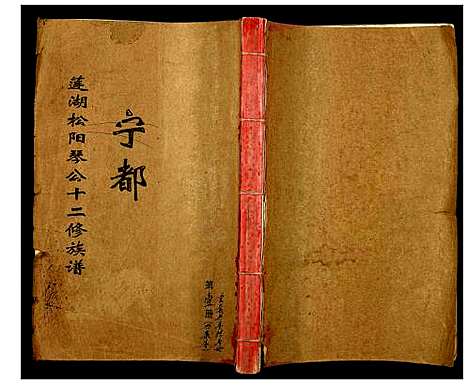 宁都
莲湖松阳琴公十二修族谱
第壹册